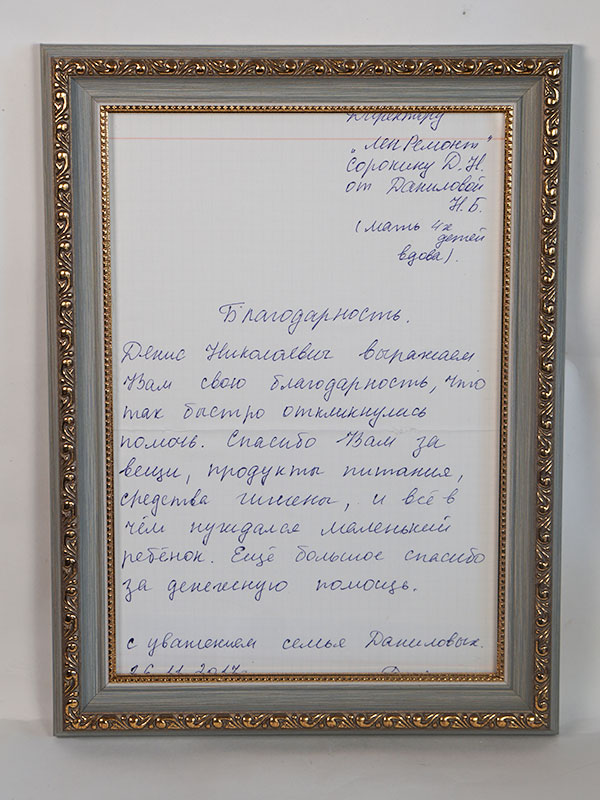 Директору
"ЛенРемонт"
Сорокину Д.Н.
от Даниловой
Н.Б.
(мать 4х
детей
вдова).
Благодарность.
Денис Николаевич выражаем
Вам свою благодарность, что
так быстро откликнулись
помочь. Спасибо Вам за
вещи, продукты питания,
средства гигиены, и всё в
чём нуждался маленький
ребёнок. Ещё большое спасибо
за денежную помощь.
с уважением семья Даниловых.
26.11.2017